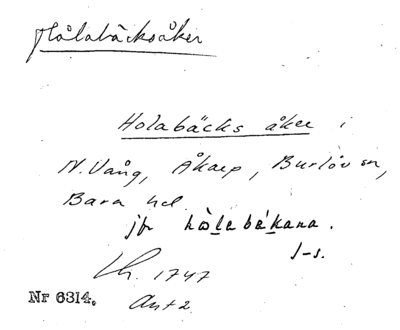 Hålabäcksåker
Holabäcks åker i
N. Vång, Åkarp, Burlöv sn,
Bara hd.
jfr hòlabákana.
l-s.
Lh. 1747
Ant 2
Nr 6314.